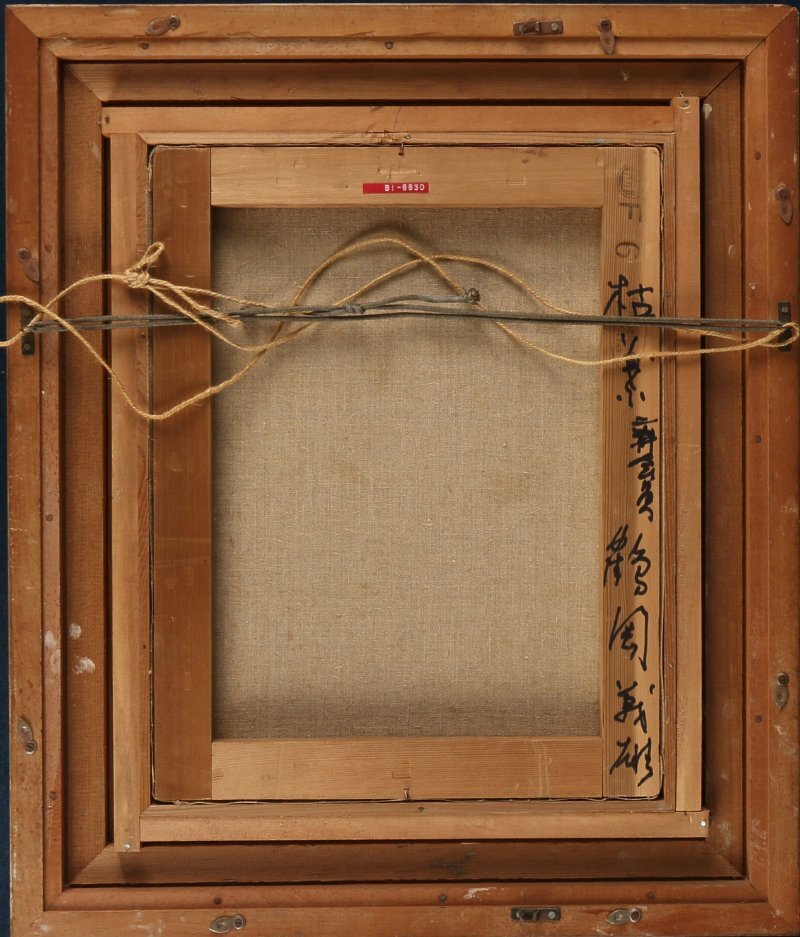 BI-6830
F6
枯葉
鶴岡義雄